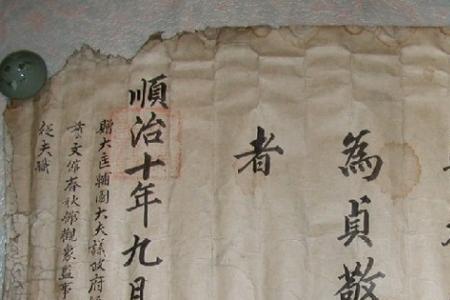 為貞敬
者
順治十年九月
贈大匡輔國大夫議政府
文館春秋館觀象監事
從夫職